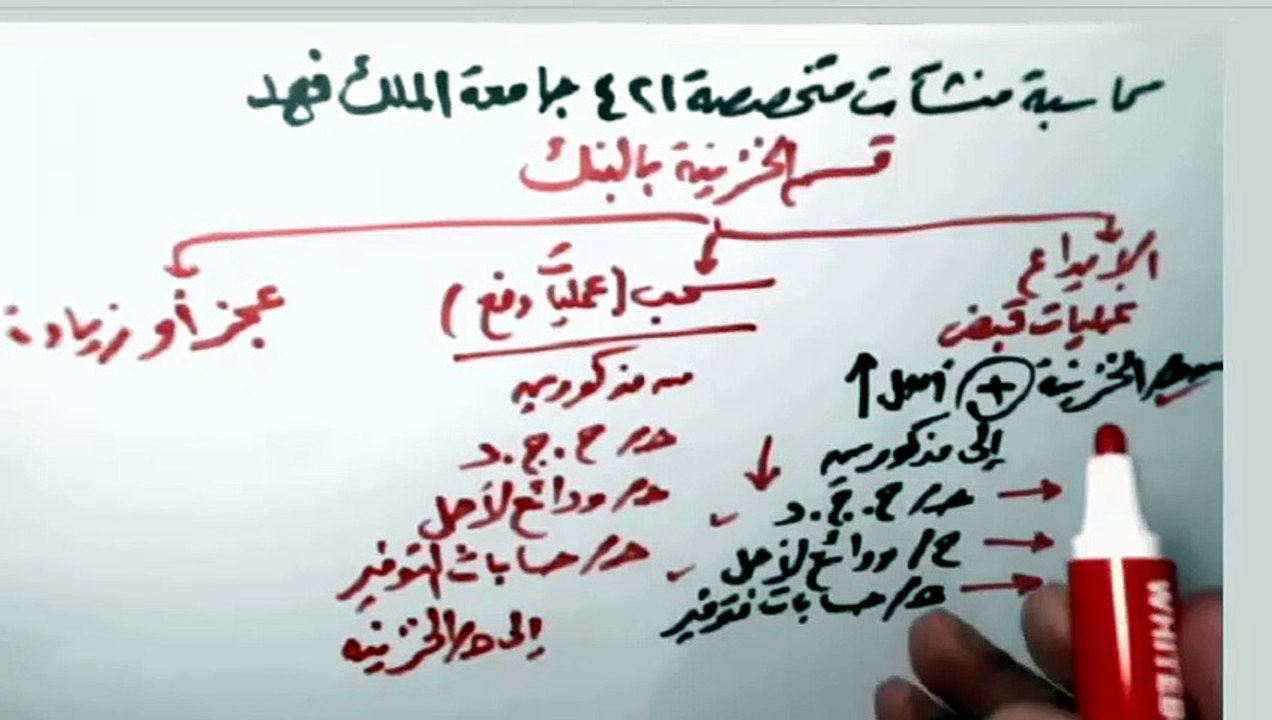 محاسبة منشآت متخصصة ٤٢١ جامعة الملك فهد
قسم الخزينة بالبنك
الايداع
عمليات قبض
من حـ/ الخزينة + أصل ↑
إلى مذكورين
حـ/ ح.ج.د
ح/ ودائع لأجل
حـ/ حسابات توفير
سحب (عمليات دفع)
من مذكورين
حـ/ ح.ج.د
حـ/ ودائع لأجل
حـ/ حسابات التوفير
إلى حـ/ الخزينه
عجز أو زيادة
WHITEB